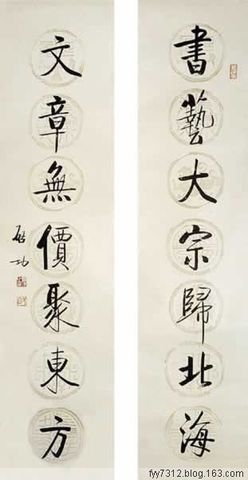 書藝大宗歸北海
文章無價聚東方
啟功
fyy7312.blog.163.com